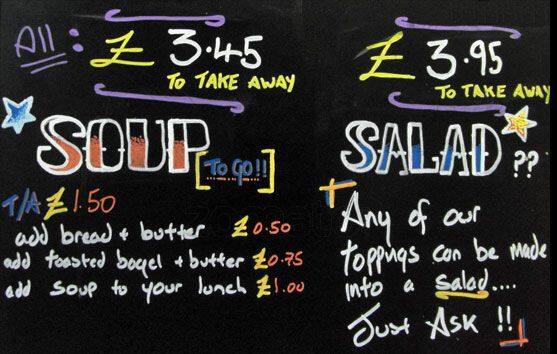 All: £ 3.45
TO TAKE AWAY
SOUP
[TO GO!!]
T/A £1.50
add bread + butter £0.50
add toasted bagel + butter £0.75
add soup to your lunch £1.00
£ 3.95
TO TAKE AWAY
SALAD ??
Any of our
toppings can be made
into a salad....
Just Ask !!